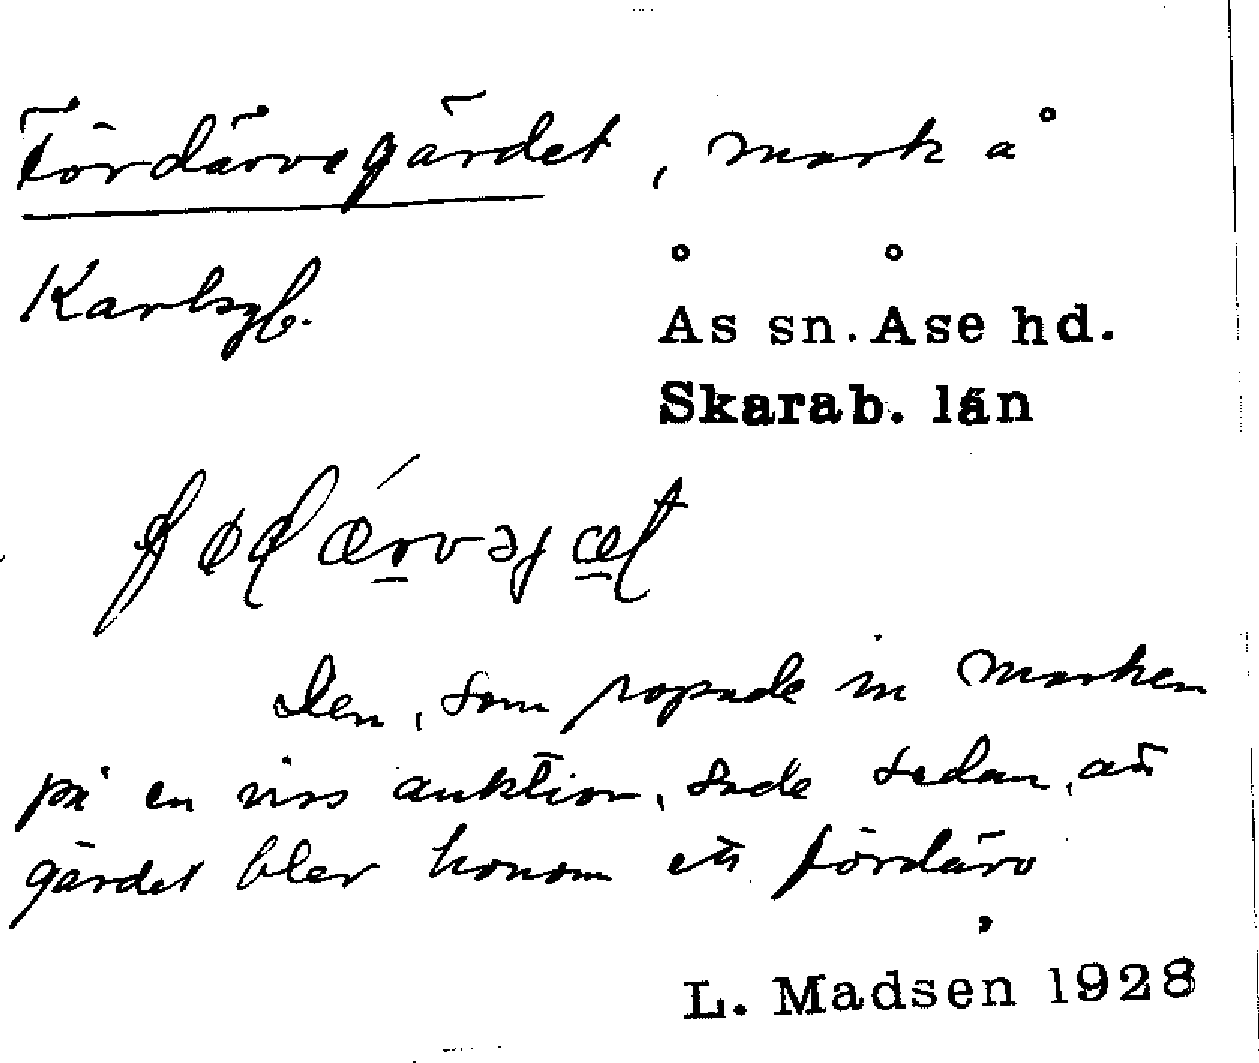 Fördärvegärdet, mark å
Karlsgb.
Ås sn. Åse hd.
Skarab. län
fødǽrvəjæt
Den, som ropade in marken
på en viss auktion, sade sedan, att
gärdet blev honom ett fördärv
L. Madsen 1928